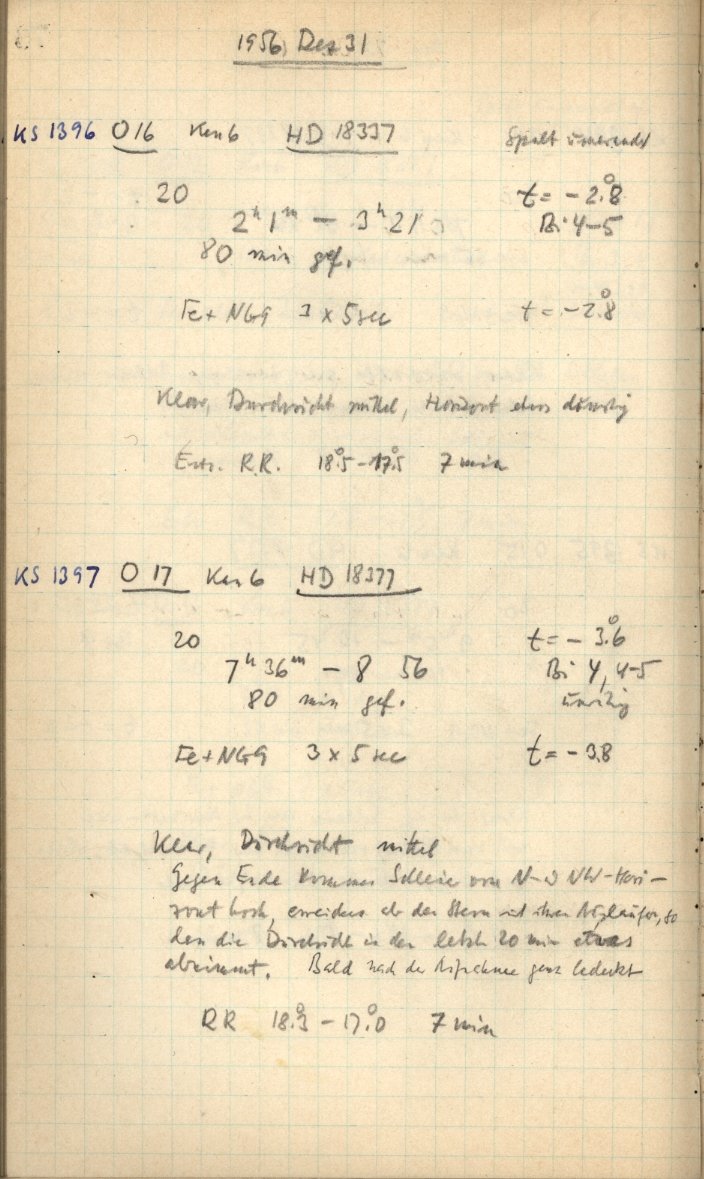 1956 Dez 31
KS 1396 O 16 Kam 6 HD 18337 Spalt
20 t = -2.°8
2h 1m — 3h 21 Bi 4-5
80 min gef.
Fe + NG9 3 x 5 sec t = -2.°8
Klar, Durchsicht mittel, Horizont etwas dunstig
Entw. R.R. 18.°5 - 17.°5 7 min
KS 1397 O 17 Kam 6 HD 18377
20 t = - 3.°6
7h 36m — 8 56 Bi 4, 4-5
80 min gef. unruhig
Fe + NG9 3 x 5 sec t = - 3.8
Klar, Durchsicht mittel
Gegen Ende kommen Schleier vom N-u NW-Hori-
zont hoch, erreichen den Stern mit ihren Ausläufern, so
den die Durchsicht in den letzten 20 min etwas
abnimmt. Bald nach der Aufnahme ganz bedeckt
RR 18.°3 - 17.°0 7 min